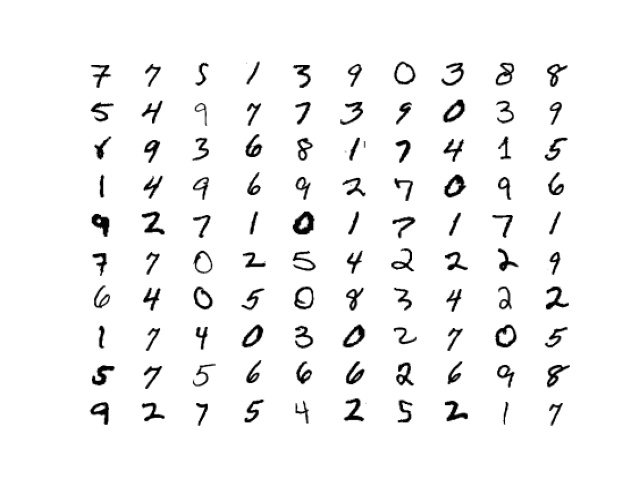 7 7 5 1 3 9 0 3 8 8
5 4 9 7 7 3 9 0 3 9
8 9 3 6 8 1 7 4 1 5
1 4 9 6 9 2 7 0 9 6
9 2 7 1 0 1 7 1 7 1
7 7 0 2 5 4 2 2 2 9
6 4 0 5 0 8 3 4 2 2
1 7 4 0 3 0 2 7 0 5
5 7 5 6 6 6 2 6 9 8
9 2 7 5 4 2 5 2 1 7